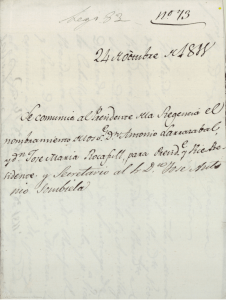 lego 83
nº 73
24 Octubre de 1811
Se comunica al Presidente de la Regencia el
nombramiento de los Sres. Dn. Antonio Larrazabal,
y Dn. Jose Maria Rocafull, para Presid.te y Vice Pre-
sidente, y Secretario al Sr. D.n Jose Anto-
nio Sombiela